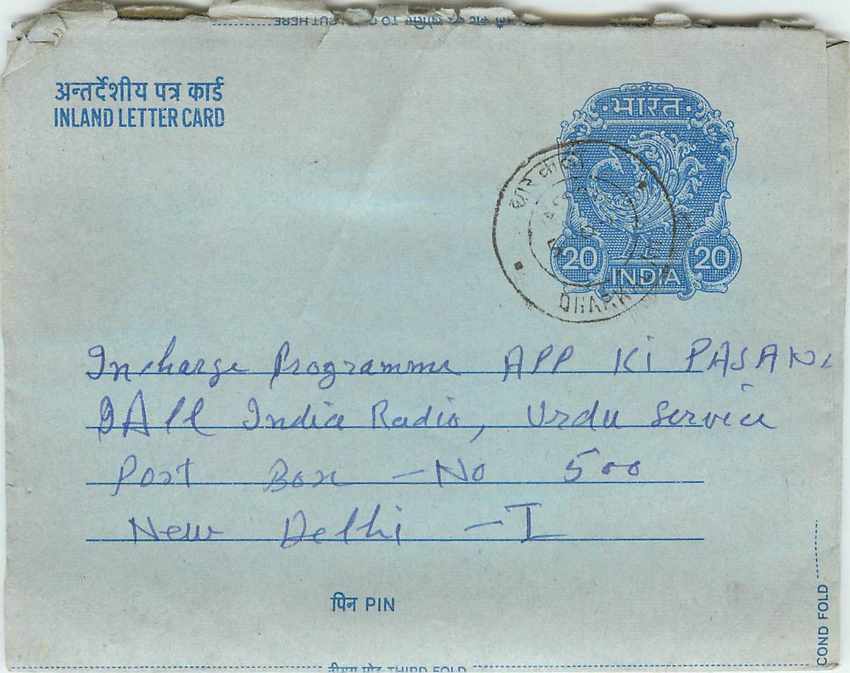 TO OPEN CUT HERE
अन्तर्देशीय पत्र कार्ड
INLAND LETTER CARD
भारत
20 INDIA 20
Incharge Programme APP KI PASAN
All India Radio, Urdu Service
Post Box - No 500
New Delhi - I
पिन PIN
COND FOLD
THIRD FOLD